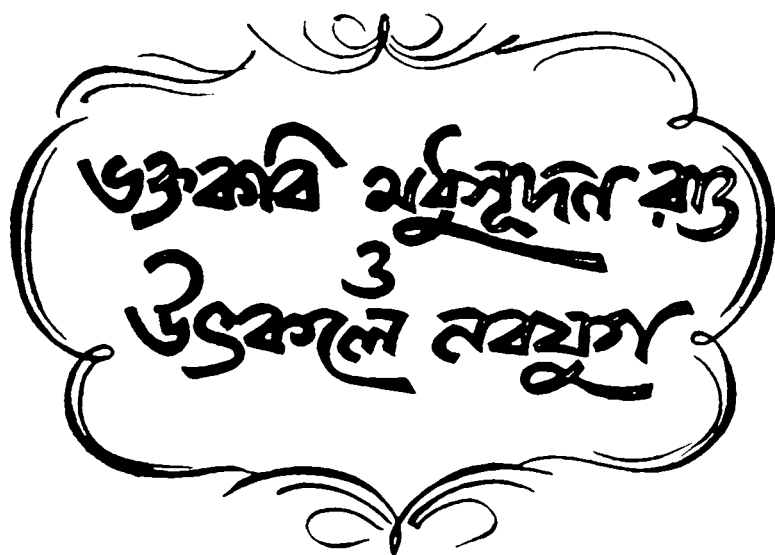 ভক্তকবি মধুসূদন রাও
ও
উৎকলে নবযুগ